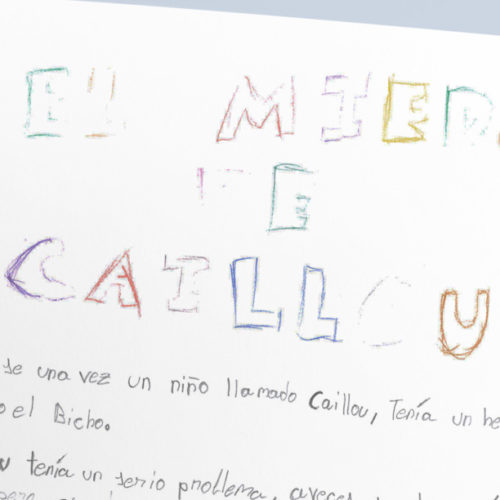 EL MIED
DE
CAILLOU
se una vez un niño llamado Caillou, Tenía un he
o el Bicho.
u tenía un serio problema, aveces